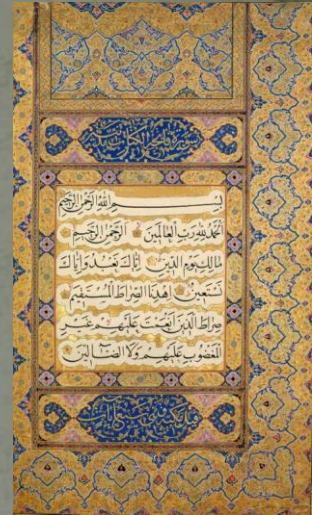 سورة فاتحة الكتاب
بِسْمِ اللهِ الرَّحْمٰنِ الرَّحِيمِ
اَلْحَمْدُ لِلهِ رَبِّ الْعَالَمِينَ الرَّحْمٰنِ الرَّحِيمِ
مَالِكِ يَوْمِ الدِّينِ اِيَّاكَ نَعْبُدُ وَاِيَّاكَ
نَسْتَعِينُ اِهْدِنَا الصِّرَاطَ الْمُسْتَقِيمَ
صِرَاطَ الَّذِينَ اَنْعَمْتَ عَلَيْهِمْ غَيْرِ
الْمَغْضُوبِ عَلَيْهِمْ وَلَا الضَّالِّينَ